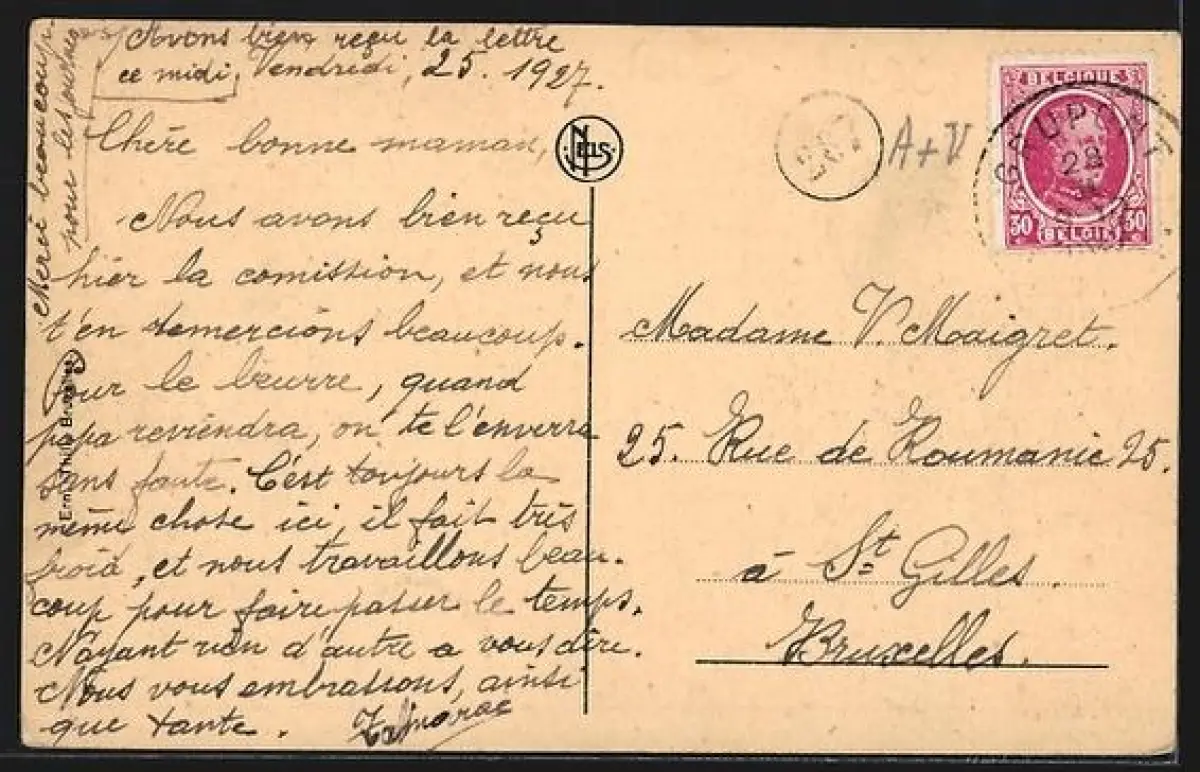 Avons bien reçu la lettre
ce midi, Vendredi, 25. 1927.
Merci beaucoup
pour les
Chére bonne maman,
Nous avons bien reçu
hier la comission, et nous
t'en remercions beaucoup.
Pour le beurre, quand
papa reviendra, on te l'enverra
sans faute. C'est toujours la
même chose ici, il fait très
froid, et nous travaillons beau-
coup pour faire passer le temps.
N'ayant rien d'autre a vous dire.
Nous vous embrassons, ainsi
que tante.
NELS
A+V
BELGIQUE
30 30
BELGIË
28
Madame V. Maigret.
25. Rue de Roumanie 25.
à St Gilles.
Bruxelles.